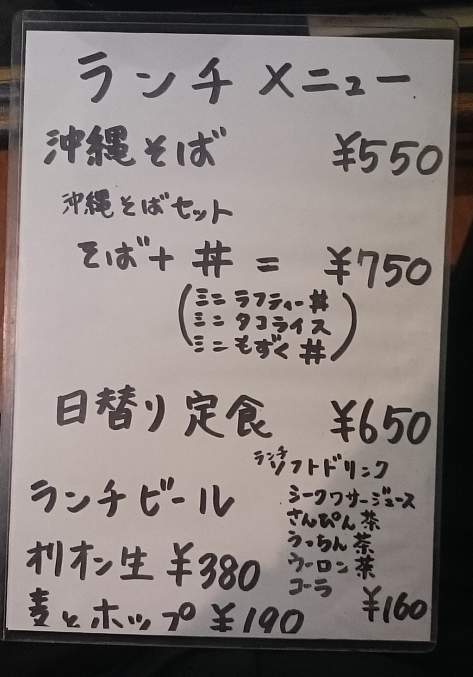 ランチメニュー
沖縄そば ¥550
沖縄そばセット
そば+丼= ¥750
(ミニラフティー丼
ミニタコライス
ミニもずく丼)
日替り定食 ¥650
ランチソフトドリンク
シークワサージュース
さんぴん茶
うっちん茶
ウーロン茶
コーラ
¥160
ランチビール
オリオン生 ¥380
麦とホップ ¥190